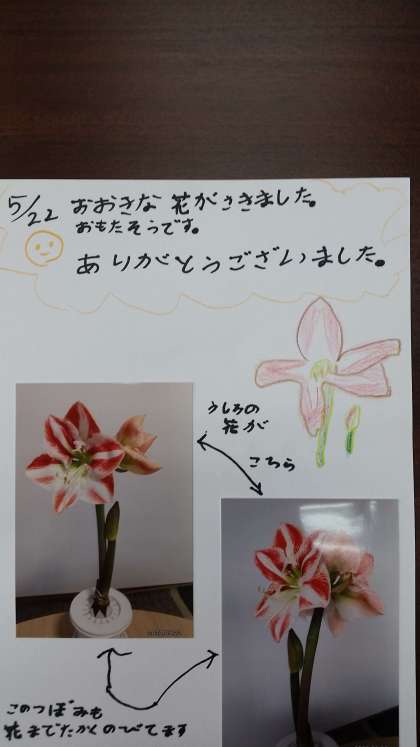 5/22 おおきな花がさきました。
おもたそうです。
ありがとうございました。
うしろの
花が
こちら
このつぼみも
花までたかくのびてます